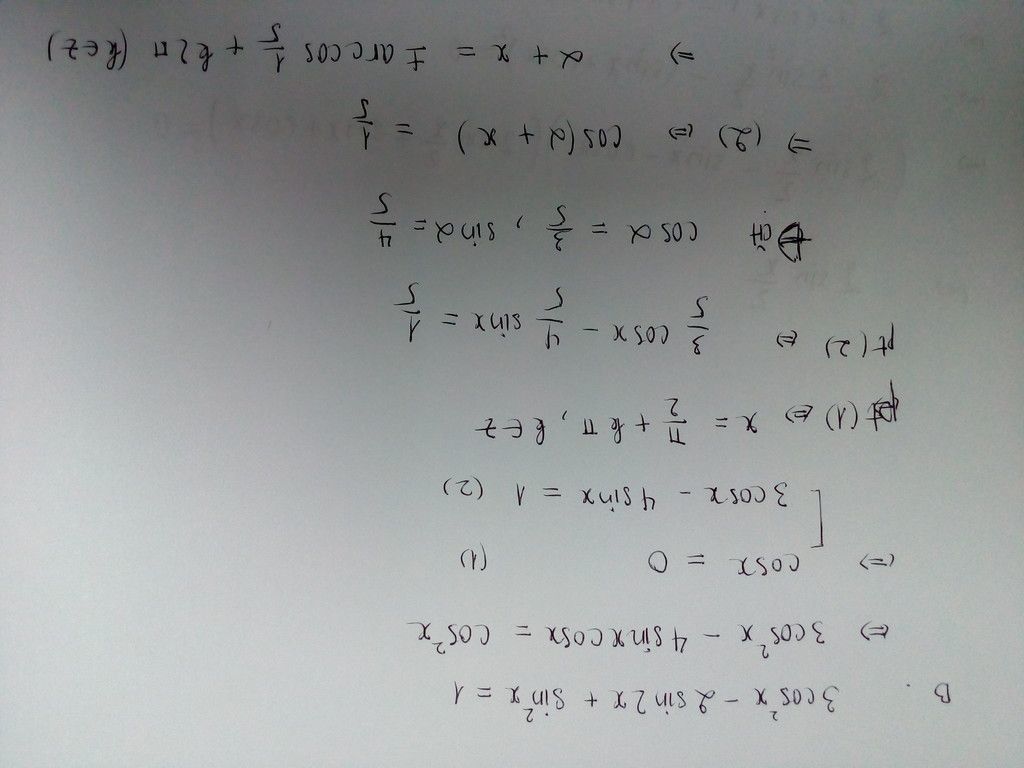 B. 3cos²x - 2sin2x + sin²x = 1
⇔ 3cos²x - 4sinxcosx = cos²x
⇔ [ cosx = 0 (1)
3cosx - 4sinx = 1 (2)
pt (1) ⇔ x = π/2 + kπ, k ∈ Z
pt (2) ⇔ 3/5 cosx - 4/5 sinx = 1/5
Đặt cosα = 3/5, sinα = 4/5
⇒ (2) ⇔ cos(α + x) = 1/5
⇒ α + x = ± arccos 1/5 + k2π (k ∈ Z)